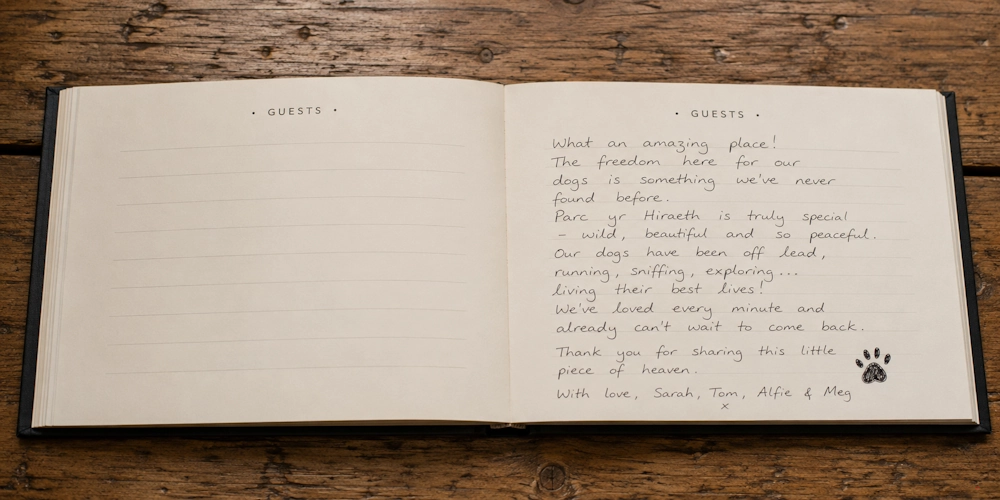 • GUESTS •
• GUESTS •
What an amazing place!
The freedom here for our
dogs is something we've never
found before.
Parc yr Hiraeth is truly special
– wild, beautiful and so peaceful.
Our dogs have been off lead,
running, sniffing, exploring...
living their best lives!
We've loved every minute and
already can't wait to come back.
Thank you for sharing this little
piece of heaven.
With love, Sarah, Tom, Alfie & Meg
x